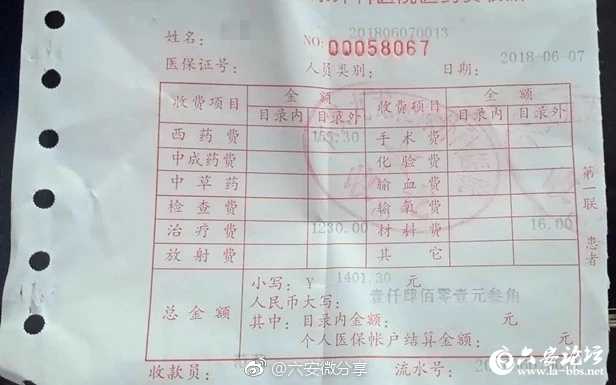 医院医药费收据
姓名: 201806070013
NO: 00058067
医保证号: 人员类别: 日期: 2018-06-07
收费项目 金额 收费项目 金额
目录内 目录外 目录内 目录外
西药费 155.30 手术费
中成药费 化验费
中草药 输血费
检查费 输氧费
治疗费 1230.00 材料费 16.00
放射费 其它
第一联 患者
总金额 小写: Y 1401.30 元
人民币大写: 壹仟肆佰零壹元叁角
其中: 目录内金额: 元
个人医保帐户结算金额: 元
收款员: 流水号:
@六安微分享
六安论坛
www.la-bbs.net